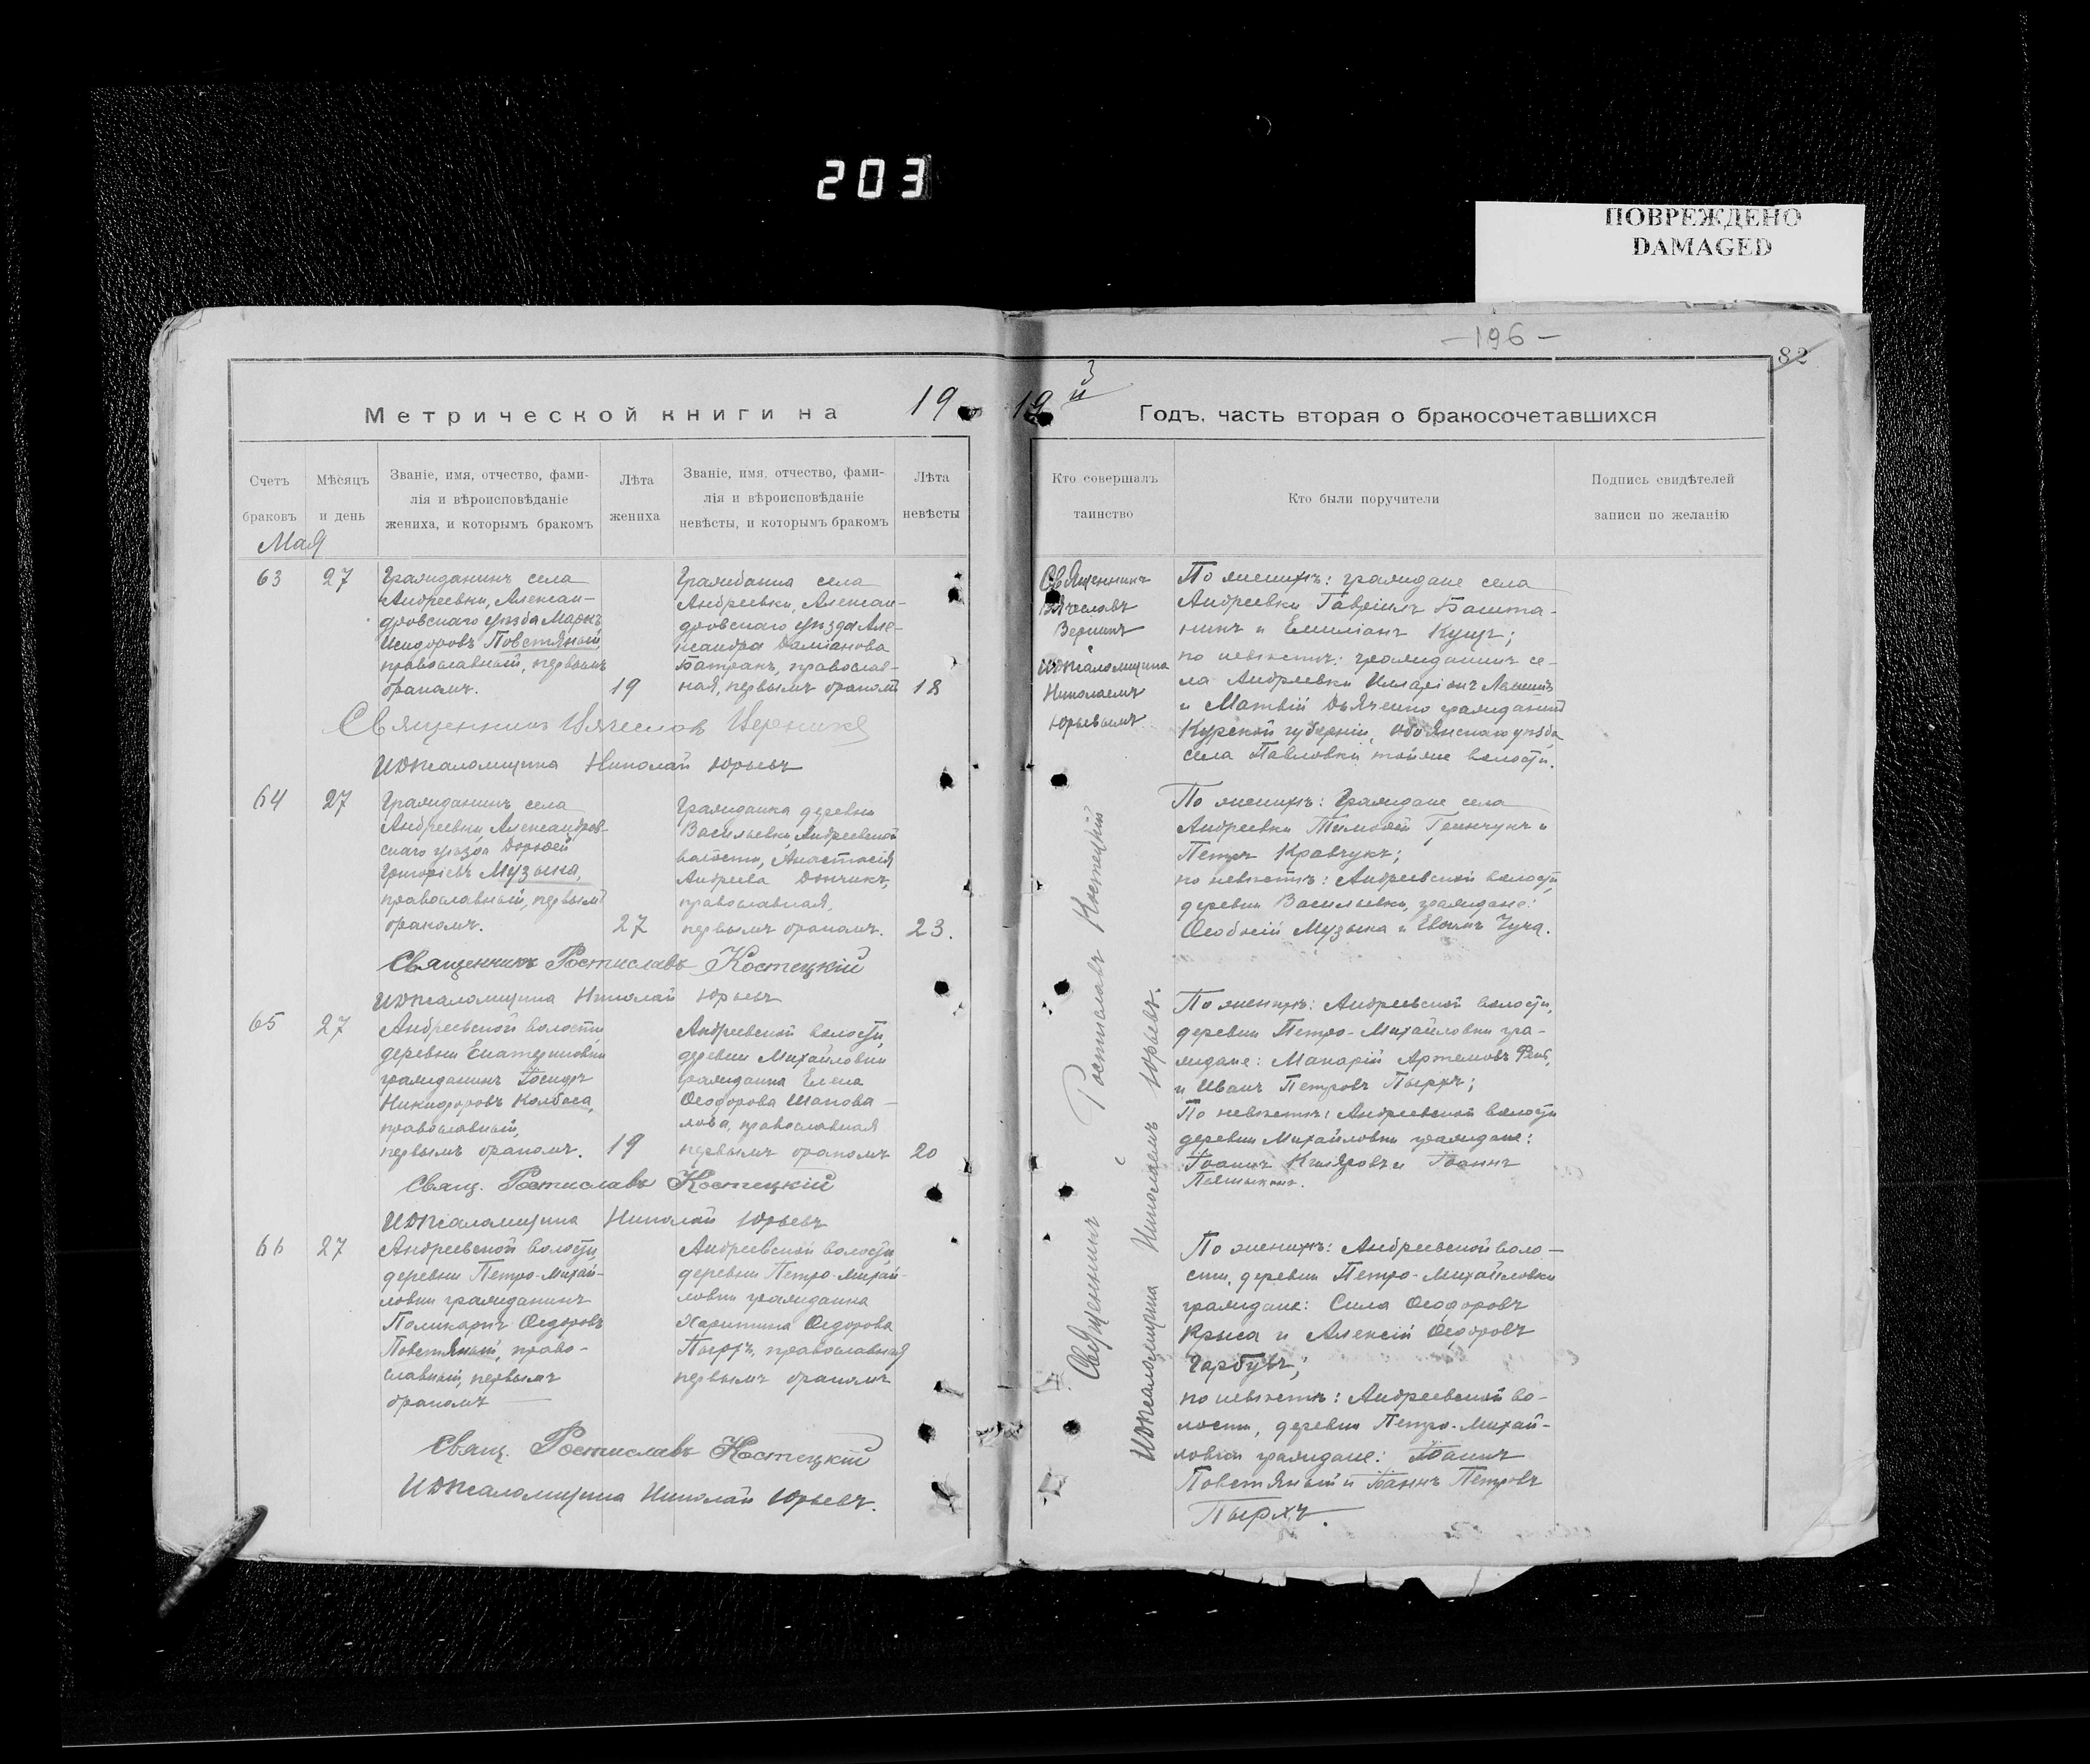 203
ПОВРЕЖДЕНО
DAMAGED
—196—
82
Метрической книги на 19
19 Годъ, часть вторая о бракосочетавшихся
Счетъ браковъ
Мѣсяцъ и день
Званіе, имя, отчество, фами-
лія и вѣроисповѣданіе
жениха, и которымъ бракомъ
Лѣта жениха
Званіе, имя, отчество, фами-
лія и вѣроисповѣданіе
невѣсты, и которымъ бракомъ
Лѣта невѣсты
Кто совершалъ
таинство
Кто были поручители
Подпись свидѣтелей
записи по желанію
Мая
63
27
Гражданинъ села
Андреевки, Алексан-
дровскаго уѣзда Маркъ
Исидоровъ Повстяный,
православный, первымъ
бракомъ.
19
Гражданка села
Андреевки, Алексан-
дровскаго уѣзда Але-
ксандра Даміанова
Батракъ, православ-
ная, первымъ бракомъ
18
Священникъ
Вячеславъ
И Псаломщика
Николаемъ
Юрьевымъ
По женихѣ: граждане села
Андреевки Гавріилъ Башта-
никъ и Емиліанъ Кущъ;
по невѣстѣ: гражданинъ се-
ла Андреевки Илларіонъ
и Матвій Дьяченко гражданинъ
Курской губерніи, Обоянскаго уѣзда
села Павловки тойже волости.
Священникъ Вячеслав
И Псаломщика Николай Юрьевъ
64
27
Гражданинъ села
Андреевки, Александров-
скаго уѣзда Дороѳей
Григоріевъ Музыка,
православный, первымъ
бракомъ.
27
Гражданка деревни
Васильевки, Андреевской
волости, Анастасія
Андреева Дончикъ,
православная,
первымъ бракомъ.
23.
По женихѣ: Граждане села
Андреевки Тимоѳей Гринчукъ и
Петръ Кравчукъ;
по невѣстѣ: Андреевской волости,
деревни Васильевки, граждане:
Ѳеодосій Музыка и Евѳимъ Чуча.
Священникъ Ростиславъ Костецкій
И Псаломщика Николай Юрьевъ
65
27
Андреевской волости
деревни Екатериновки
гражданинъ Іосифъ
Никифоровъ Колбаса,
православный,
первымъ бракомъ.
19
Андреевской волости,
деревни Михайловки
гражданка Елена
Ѳеодорова Шапова-
лова, православная
первымъ бракомъ
20
Священникъ Ростиславъ Костецкій
И Псаломщика Николаемъ Юрьевъ.
По женихѣ: Андреевской волости,
деревни Петро-Михайловки гра-
ждане: Макарій Артемовъ
и Иванъ Петровъ Пырхъ;
По невѣстѣ: Андреевской волости
деревни Михайловки граждане:
Іоаннъ и Іоаннъ
Свящ. Ростиславъ Костецкій
И Псаломщика Николай Юрьевъ
66
27
Андреевской волости,
деревни Петро-Михай-
ловки гражданинъ
Поликарпъ Ѳедоровъ
Повстяный, право-
славный, первымъ
бракомъ
Андреевской волости,
деревни Петро-Михай-
ловки гражданка
Харитина Ѳедорова
Пырхъ, православная
первымъ бракомъ
По женихѣ: Андреевской воло-
сти, деревни Петро-Михайловки
граждане: Сила Ѳеодоровъ
Крыса и Алексій Ѳеодоровъ
Гарбузъ;
по невѣстѣ: Андреевской во-
лости, деревни Петро-Михай-
ловки граждане: Іоаннъ
Повстяный и Іоаннъ Петровъ
Пырхъ.
Свящ. Ростиславъ Костецкій
И Псаломщика Николай Юрьевъ.